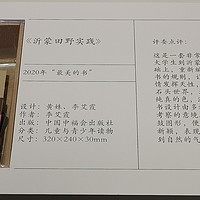 《沂蒙田野实践》
2020年“最美的书”
设计：黄姝、李艾霞
作者：李艾霞
出版：中国中福会出版社
分类：儿童与青少年读物
尺寸：320×240×30mm
评委点评：
这是一套非常
大学生到沂蒙
础上，重新编
书的规则，让
情发挥天性，
石头世界，
纯真的色，
书设计由多
考察的意境
鼓图形，
新颖，表现
到自然的气